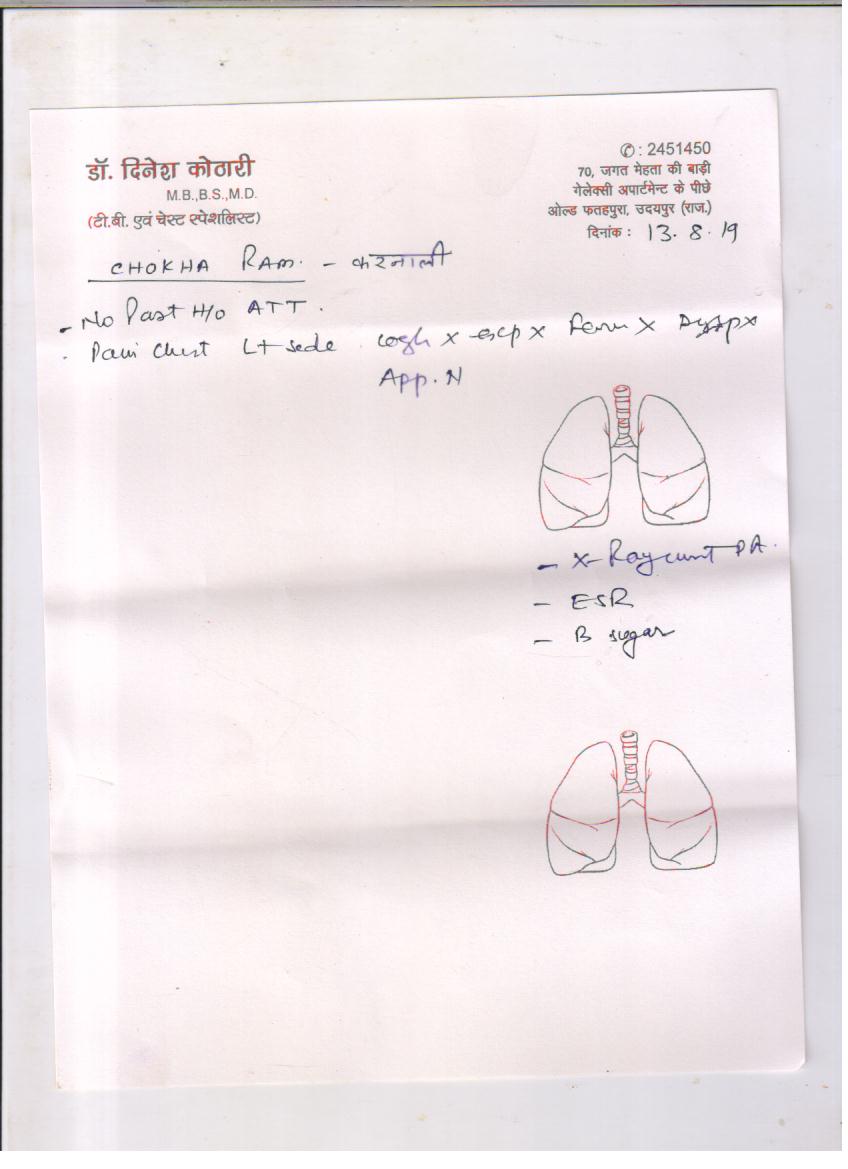 डॉ. दिनेश कोठारी
M.B.,B.S.,M.D.
(टी.बी. एवं चेस्ट स्पेशलिस्ट)
✆ : 2451450
70, जगत मेहता की बाड़ी
गेलेक्सी अपार्टमेन्ट के पीछे
ओल्ड फतहपुरा, उदयपुर (राज.)
दिनांक : 13. 8. 19
CHOKHA RAM. - करनाली
- No Past H/o ATT.
. Pain Chest Lt side. Cogh x x x
App. N
- X-Ray PA.
- ESR
- B sugar